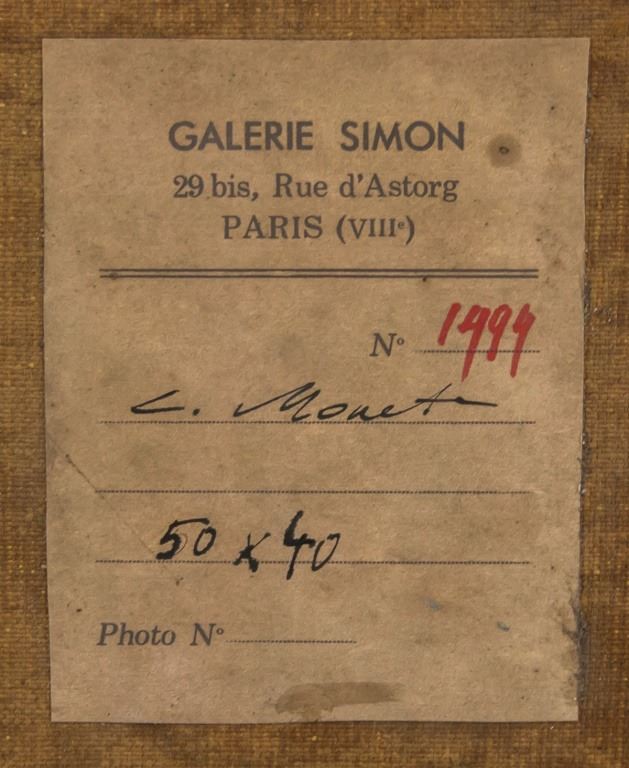 GALERIE SIMON
29 bis, Rue d'Astorg
PARIS (VIIIe)
No 1999
C. Monet
50 x 40
Photo No